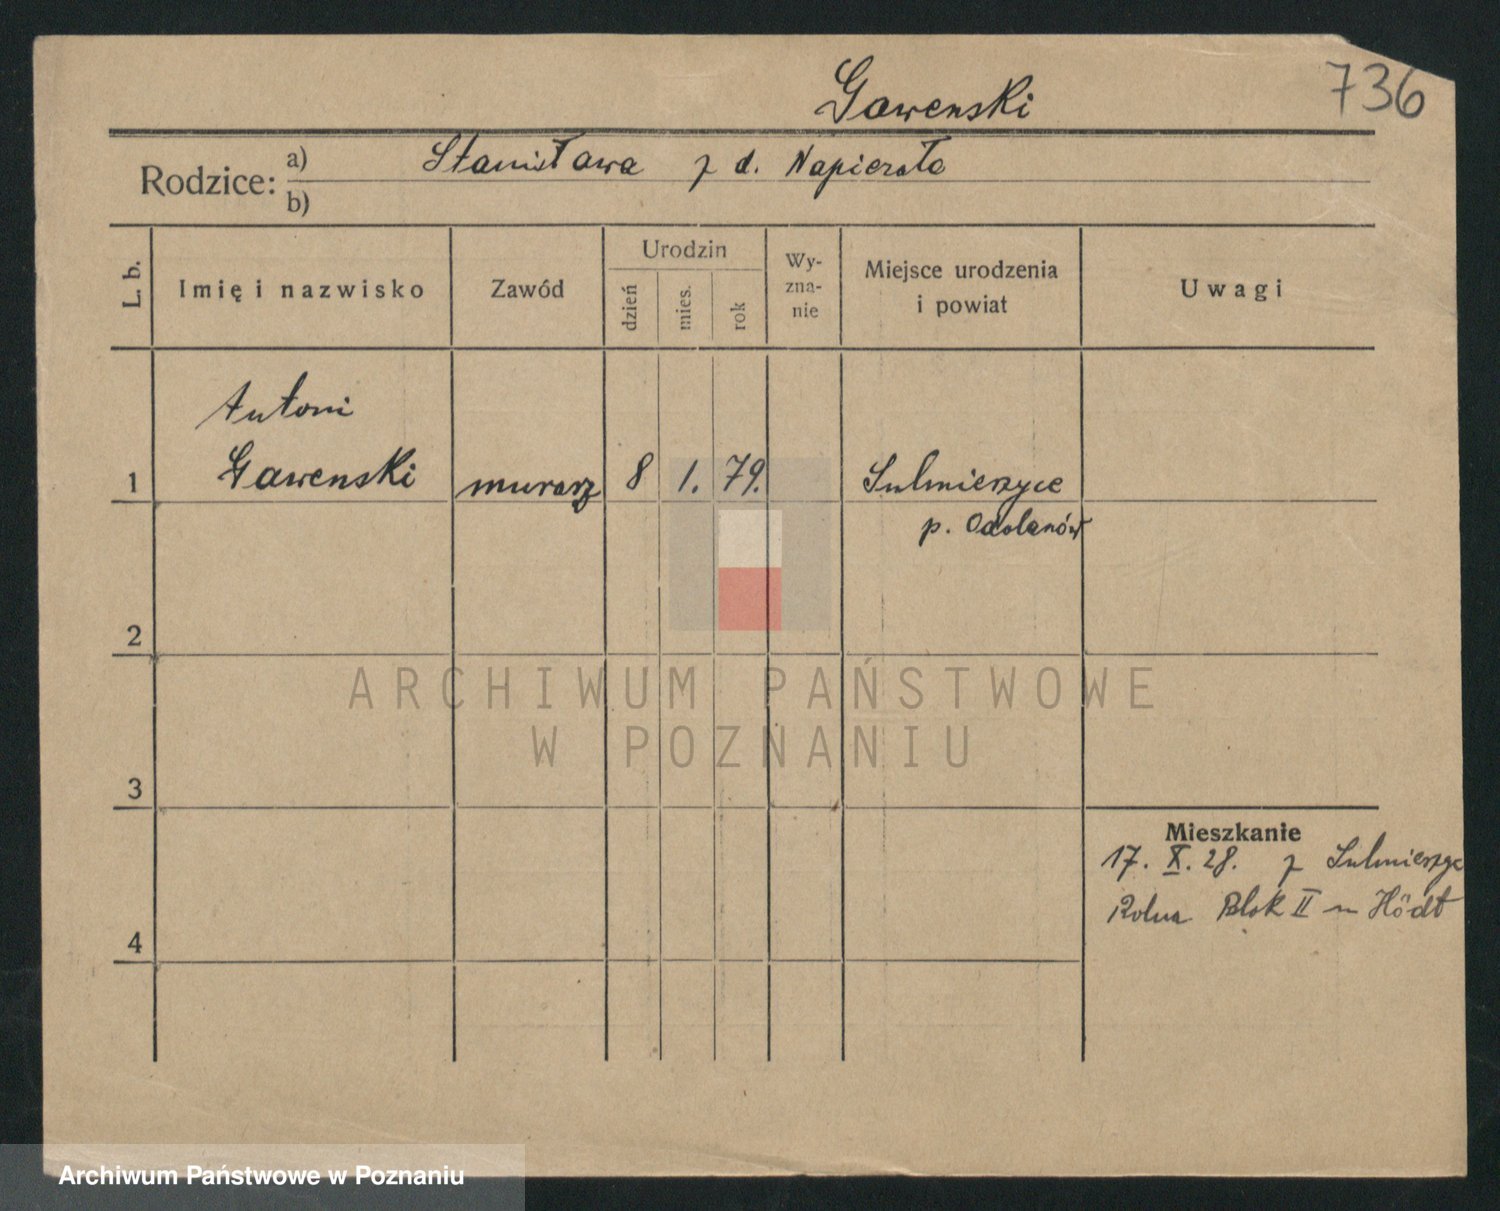 Gawenski
736
Rodzice: a) Stanisława z d. Napierała
b)
L. b.
Imię i nazwisko
Zawód
Urodzin
dzień
mies.
rok
Wy-
zna-
nie
Miejsce urodzenia
i powiat
Uwagi
Antoni
1 Gawenski murarz 8 1. 79. Sulmierzyce
p. Odolanów
2
ARCHIWUM PAŃSTWOWE
W POZNANIU
3
Mieszkanie
17. X. 28. z Sulmierzyc
Rolna Blok II Hödt
4
Archiwum Państwowe w Poznaniu